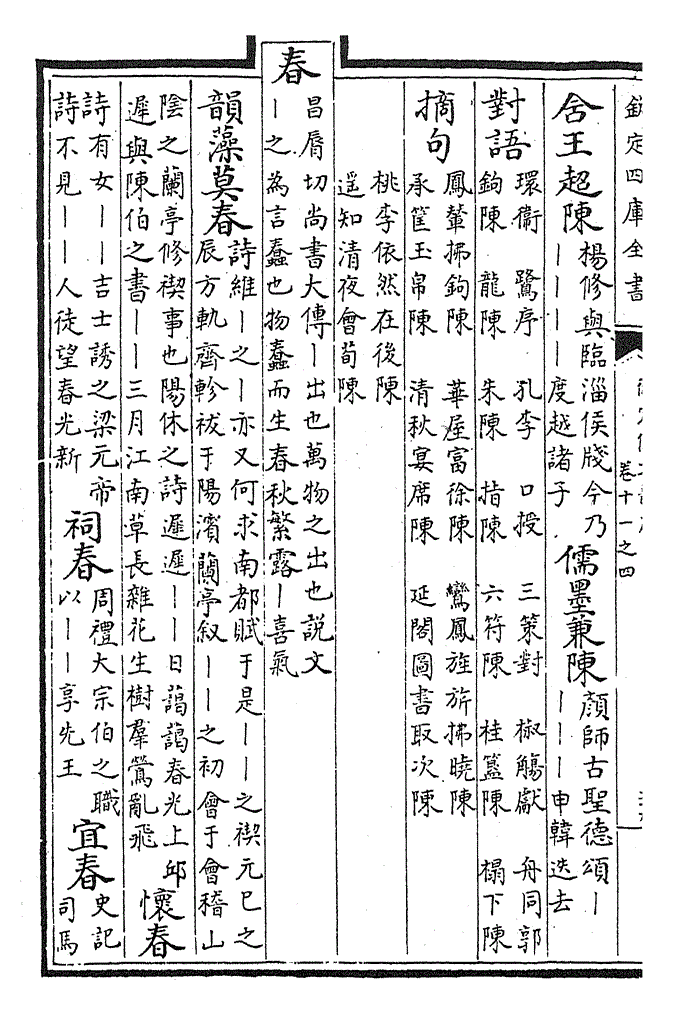 欽定四庫全書
卷十一之四
舍王超陳 楊修與臨淄侯牋今乃
||||度越諸子
儒墨兼陳 顏師古聖德頌|
|||申韓迭去
對語 環衛 鷺序 孔李 口授 三策對 椒觴獻 舟同郭
鉤陳 龍陳 朱陳 指陳 六符陳 桂簋陳 榻下陳
摘句 鳳輦拂鉤陳 華屋富徐陳 鸞鳳旌旂拂曉陳
承筐玉帛陳 清秋宴席陳 延閣圖書取次陳
桃李依然在後陳
遥知清夜會荀陳
春 昌脣切尚書大傳|出也萬物之出也説文
|之為言蠢也物蠢而生春秋繁露|喜氣
韻藻莫春 詩維|之|亦又何求南都賦于是||之禊元巳之
辰方軌齊軫祓于陽濱蘭亭叙||之初會于會稽山
陰之蘭亭修禊事也陽休之詩遲遲||日藹藹春光上邱
遲與陳伯之書||三月江南草長雜花生樹羣鶯亂飛
懷春
詩有女||吉士誘之梁元帝
詩不見||人徒望春光新
祠春 周禮大宗伯之職
以||享先王
宜春 史記
司馬